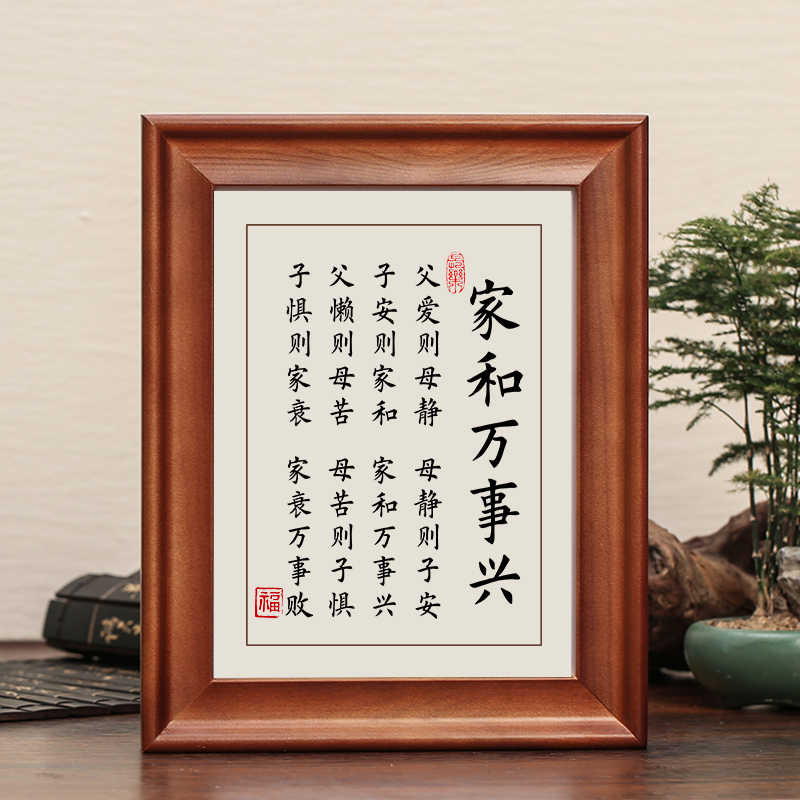 家和万事兴
长乐
父爱则母静 母静则子安
子安则家和 家和万事兴
父懒则母苦 母苦则子惧
子惧则家衰 家衰万事败
福